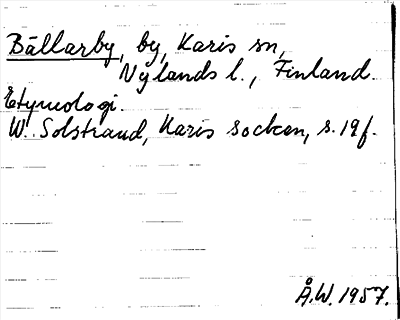 Bällarby, by, Karis sn,
Nylands l., Finland.
Etymologi.
W. Solstrand, Karis socken, s. 19f.
Å.W. 1957.